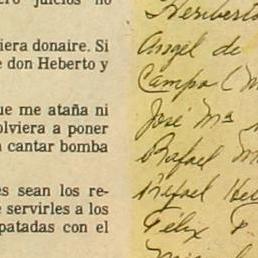 ero juicios no
iera donaire. Si
e don Heberto y
ue me ataña ni
olviera a poner
a cantar bomba
es sean los re-
e servirles a los
patadas con el
Heriberto
Angel de
Campo (
José Mª
Rafael
Rafael Hel
Félix F.